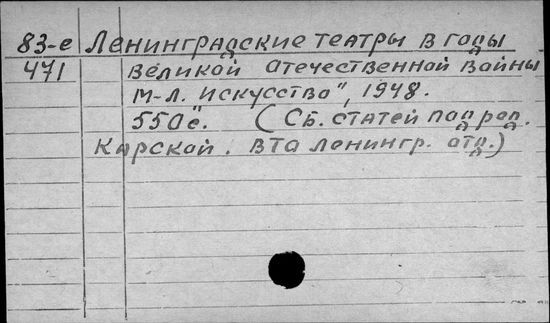 83-е Ленинградские театры в годы
471 великой отечественной войны
М-Л. Искусство", 1948.
550с. (Сб. статей под ред.
Карской. ВТО Ленингр. отд.)